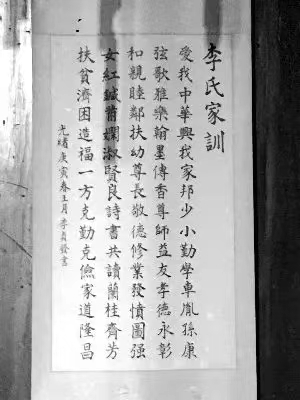 李氏家訓
愛我中華興我家邦少小勤學車胤孫康
弦歌雅樂翰墨傳香尊師益友孝德永彰
和親睦鄰扶幼尊長敬德修業發憤圖强
女紅鍼黹嫻淑賢良詩書共讀蘭桂齊芳
扶貧濟困造福一方克勤克儉家道隆昌
光緒庚寅春王月李貴發書